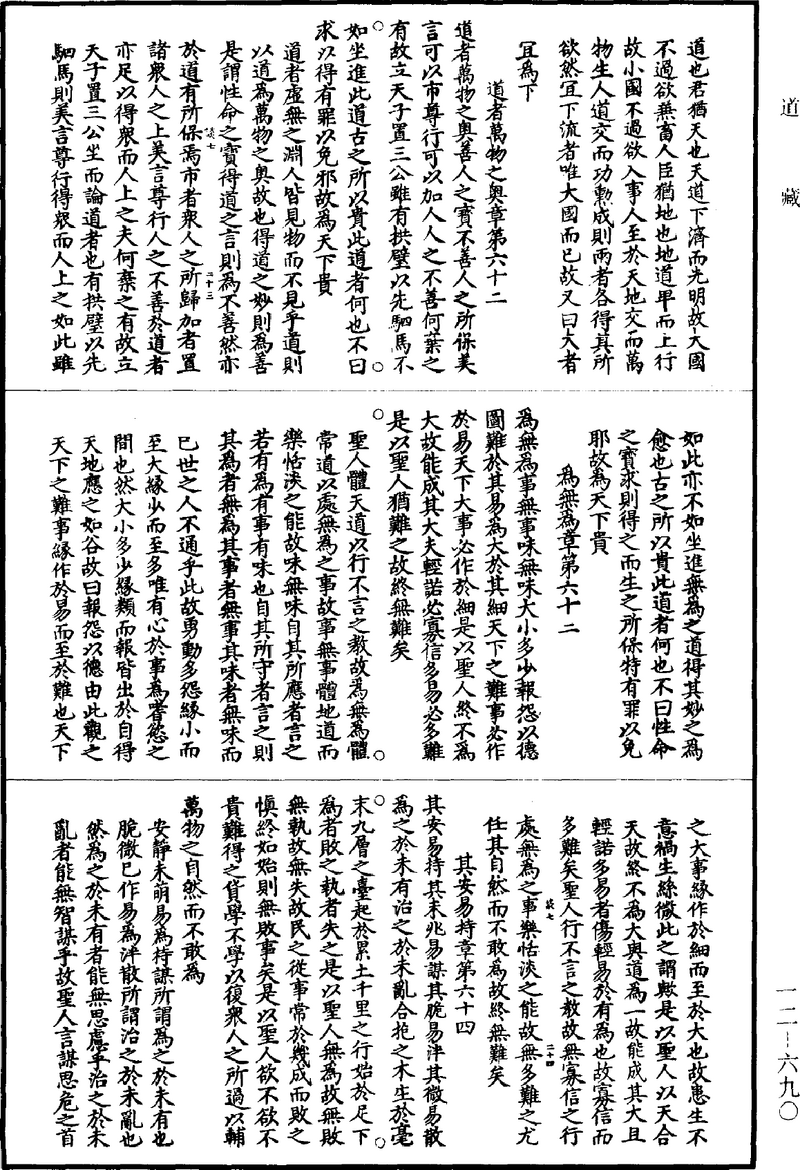 道藏
道也君猶天也天道下濟而光明故大國
不過欲兼畜人臣猶地也地道卑而上行
故小國不過欲入事人至於天地交而萬
物生人道交而功勳成則兩者各得其所
欲然宜下流者唯大國而已故又曰大者
宜為下
道者萬物之奧章第六十二
道者萬物之奧善人之寶不善人之所保美
言可以市尊行可以加人人之不善何棄之
有故立天子置三公雖有拱璧以先駟馬不
如坐進此道古之所以貴此道者何也不曰
求以得有罪以免邪故為天下貴
道者虛無之淵人皆見物而不見乎道則
以道為萬物之奧故也得道之妙則為善
是謂性命之寶得道之言則為不善然亦
於道有所保焉市者衆人之所歸加者置
談七
二十三
諸衆人之上美言尊行人之不善於道者
亦足以得衆而人上之夫何棄之有故立
天子置三公坐而論道者也有拱璧以先
駟馬則美言尊行得衆而人上之如此雖
如此亦不如坐進無為之道得其妙之為
愈也古之所以貴此道者何也不曰性命
之寶求則得之而生之所保特有罪以免
耶故為天下貴
為無為章第六十二
為無為事無事味無味大小多少報怨以德
圖難於其易為大於其細天下之難事必作
於易天下大事必作於細是以聖人終不為
大故能成其大夫輕諾必寡信多易必多難
是以聖人猶難之故終無難矣
聖人體天道以行不言之教故為無為體
常道以處無為之事故事無事體地道而
樂恬淡之能故味無味自其所應者言之
若有為有事有味也自其所守者言之則
其為者無為其事者無事其味者無味而
已世之人不通乎此故勇動多怨緣小而
至大緣少而至多唯有心於事為嗜慾之
間也然大小多少緣類而報皆出於自得
天地應之如谷故曰報怨以德由此觀之
天下之難事緣作於易而至於難也天下
之大事緣作於細而至於大也故患生不
意禍生絲微此之謂歟是以聖人以天合
天故終不為大與道為一故能成其大且
輕諾多易者傷輕易於有為也故寡信而
多難矣聖人行不言之教故無寡信之行
談七
二十四
處無為之事樂恬淡之能故無多難之尤
任其自然而不敢為故終無難矣
其安易持章第六十四
其安易持其未兆易謀其脆易泮其微易散
為之於未有治之於未亂合抱之木生於毫
末九層之臺起於累土千里之行始於足下
為者敗之執者失之是以聖人無為故無敗
無執故無失故民之從事常於幾成而敗之
慎終如始則無敗事矣是以聖人欲不欲不
貴難得之貨學不學以復衆人之所過以輔
萬物之自然而不敢為
安靜未萌易為持謀所謂為之於未有也
脆微已作易為泮散所謂治之於未亂也
然為之於未有者能無思慮乎治之於未
亂者能無智謀乎故聖人言謀思危之首
一二－六九〇